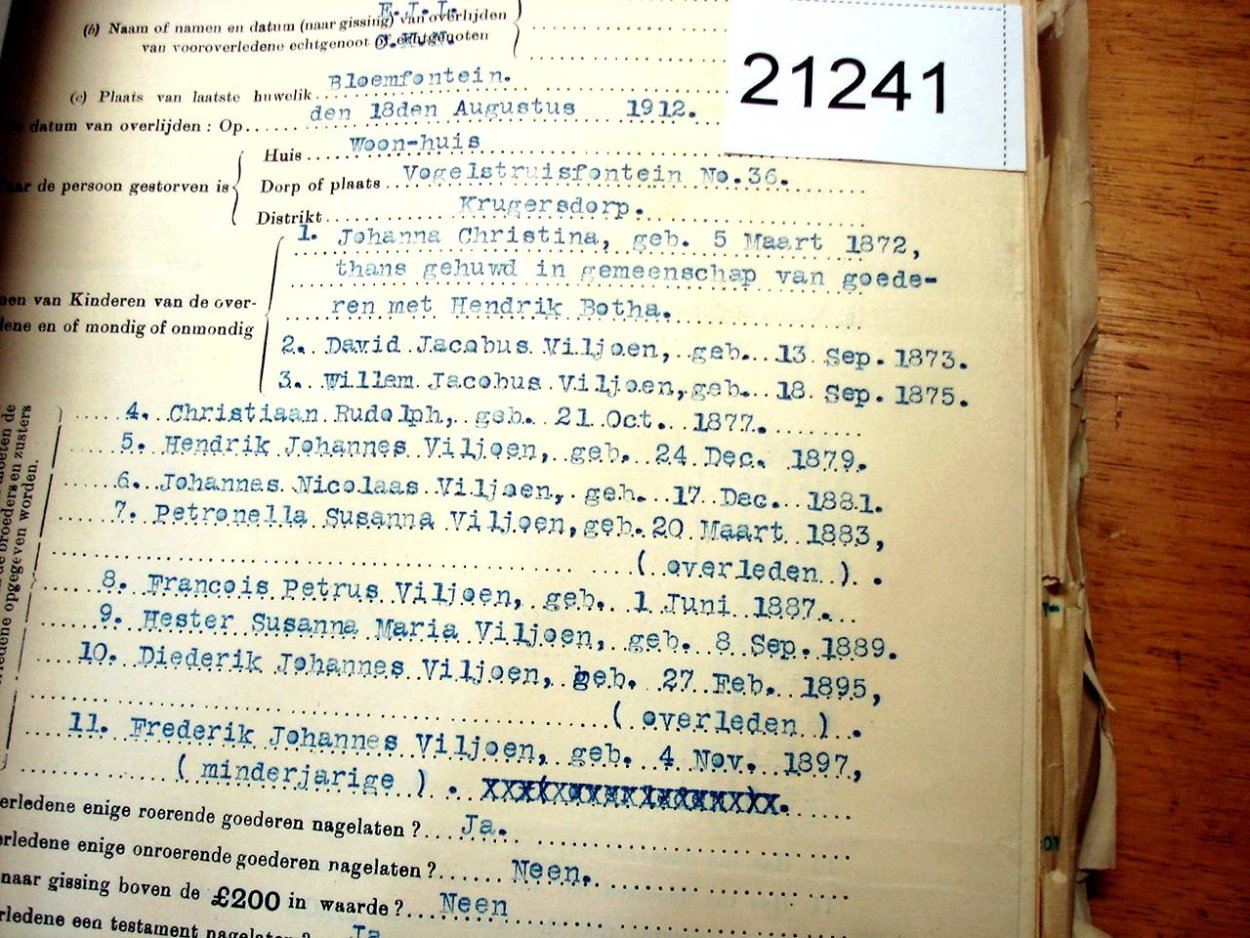 E.J.L.
(b) Naam of namen en datum (naar gissing) van overlijden
van vooroverledene echtgenoot of echtgenoten
21241
(c) Plaats van laatste huwelik.. Bloemfontein.
datum van overlijden : Op..... den 18den Augustus 1912.
Huis.... Woon-huis
de persoon gestorven is
Dorp of plaats... Vogelstruisfontein No.36.
Distrikt........ Krugersdorp.
1. Johanna Christina, geb. 5 Maart 1872,
thans gehuwd in gemeenschap van goede-
van Kinderen van de over- ren met Hendrik Botha.
en of mondig of onmondig 2. David Jacobus Viljoen, geb. 13 Sep. 1873.
3. Willem Jacobus Viljoen, geb. 18 Sep. 1875.
broeders en zusters
opgegeven worden.
4. Christiaan Rudolph, geb. 21 Oct. 1877.
5. Hendrik Johannes Viljoen, geb. 24 Dec. 1879.
6. Johannes Nicolaas Viljoen, geb. 17 Dec. 1881.
7. Petronella Susanna Viljoen, geb. 20 Maart 1883,
( overleden ).
8. Francois Petrus Viljoen, geb. 1 Juni 1887.
9. Hester Susanna Maria Viljoen, geb. 8 Sep. 1889.
10. Diederik Johannes Viljoen, geb. 27 Feb. 1895,
( overleden ).
11. Frederik Johannes Viljoen, geb. 4 Nov. 1897,
( minderjarige ).
enige roerende goederen nagelaten ?... Ja.
enige onroerende goederen nagelaten ?...... Neen.
naar gissing boven de £200 in waarde ?... Neen
een testament nagelaten ? Ja